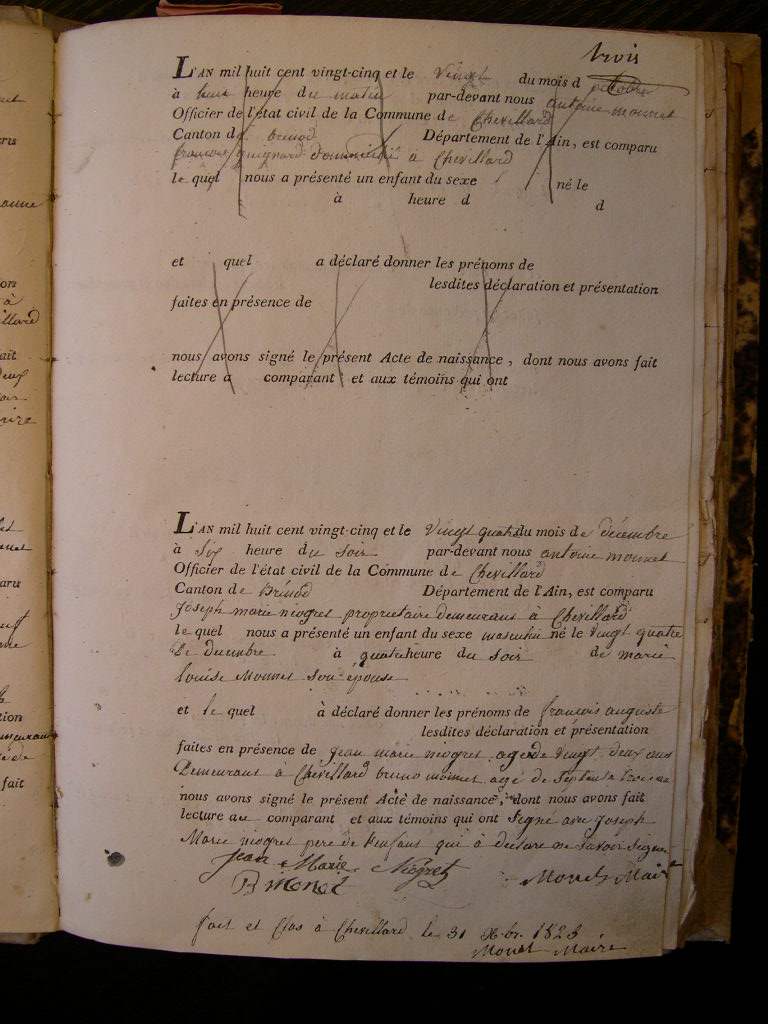 trois
L'AN mil huit cent vingt-cinq et le vingt du mois d octobre
à huit heure du matin par-devant nous antoine monnet
Officier de l'état civil de la Commune de Chevillard
Canton de brenod Département de l'Ain, est comparu
françois guignard domicilié à Chevillard
le quel nous a présenté un enfant du sexe né le
à heure d d
et quel a déclaré donner les prénoms de
lesdites déclaration et présentation
faites en présence de
nous avons signé le présent Acte de naissance, dont nous avons fait
lecture a comparant et aux témoins qui ont
L'AN mil huit cent vingt-cinq et le vingt quatre du mois de décembre
à six heure du soir par-devant nous antoine monnet
Officier de l'état civil de la Commune de Chevillard
Canton de Brénod Département de l'Ain, est comparu
joseph marie niogret propriétaire demeurant à Chevillard
le quel nous a présenté un enfant du sexe masculin né le vingt quatre
de decembre à quatre heure du soir de marie
louise Monnet son épouse
et le quel à déclaré donner les prénoms de françois auguste
lesdites déclaration et présentation
faites en présence de jean marie niogret agé de vingt deux ans
Demeurant à Chevillard bruno monnet agé de septante trois ans
nous avons signé le présent Acte de naissance, dont nous avons fait
lecture au comparant et aux témoins qui ont signé avec joseph
Marie niogret pere de l'enfant qui à déclaré ne savoir signer
jean Marie Niogret
B monet Monet Maire
fait et Clos à Chevillard le 31 Xbr. 1825
Monet Maire